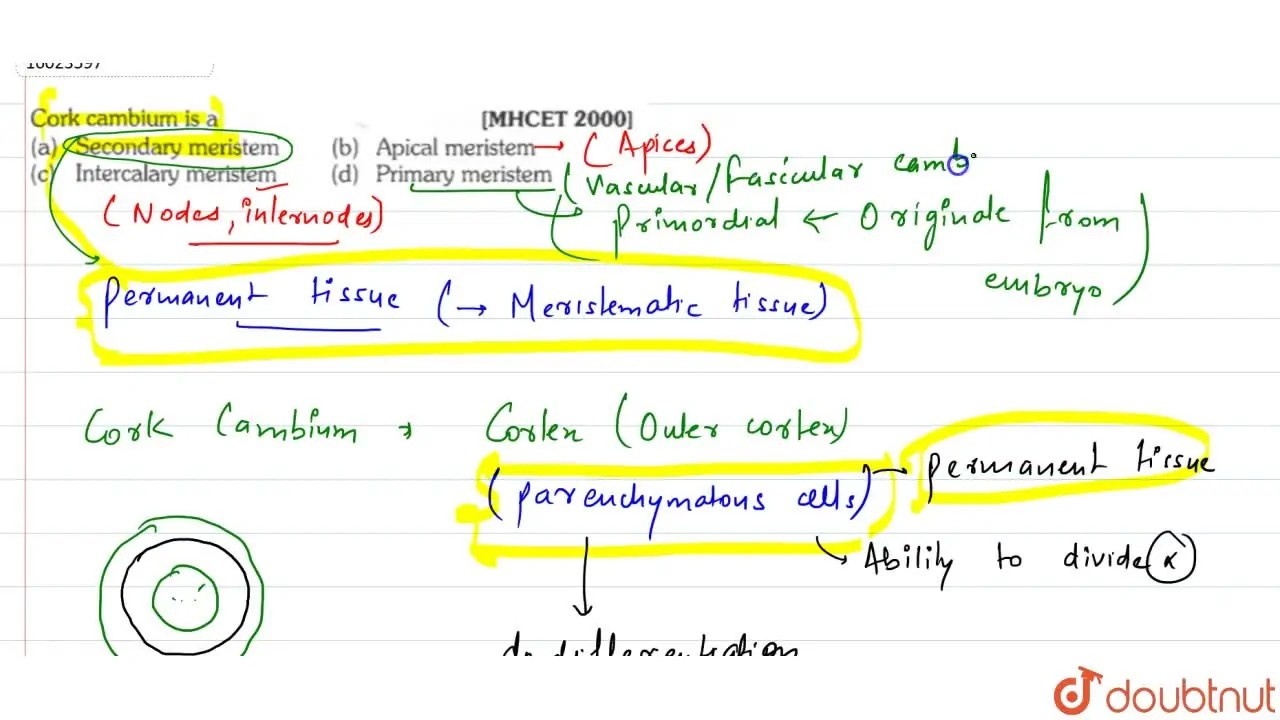 16023597
Cork cambium is a [MHCET 2000]
(a) Secondary meristem (b) Apical meristem → (Apices)
(c) Intercalary meristem (d) Primary meristem (Vascular/fascicular camb
(Nodes, internodes) Primordial ← Originate from
embryo)
Permanent tissue (→ Meristematic tissue)
Cork Cambium → Cortex (Outer cortex)
(parenchymatous cells) → permanent tissue
→ Ability to divide (x)
dedifferentiation
doubtnut